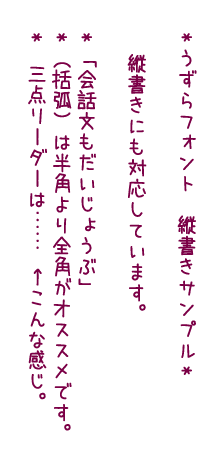 *うずらフォント　縦書きサンプル*
縦書きにも対応しています。
*「会話文もだいじょうぶ」
*（括弧）は半角より全角がオススメです。
*　三点リーダーは……　↑こんな感じ。